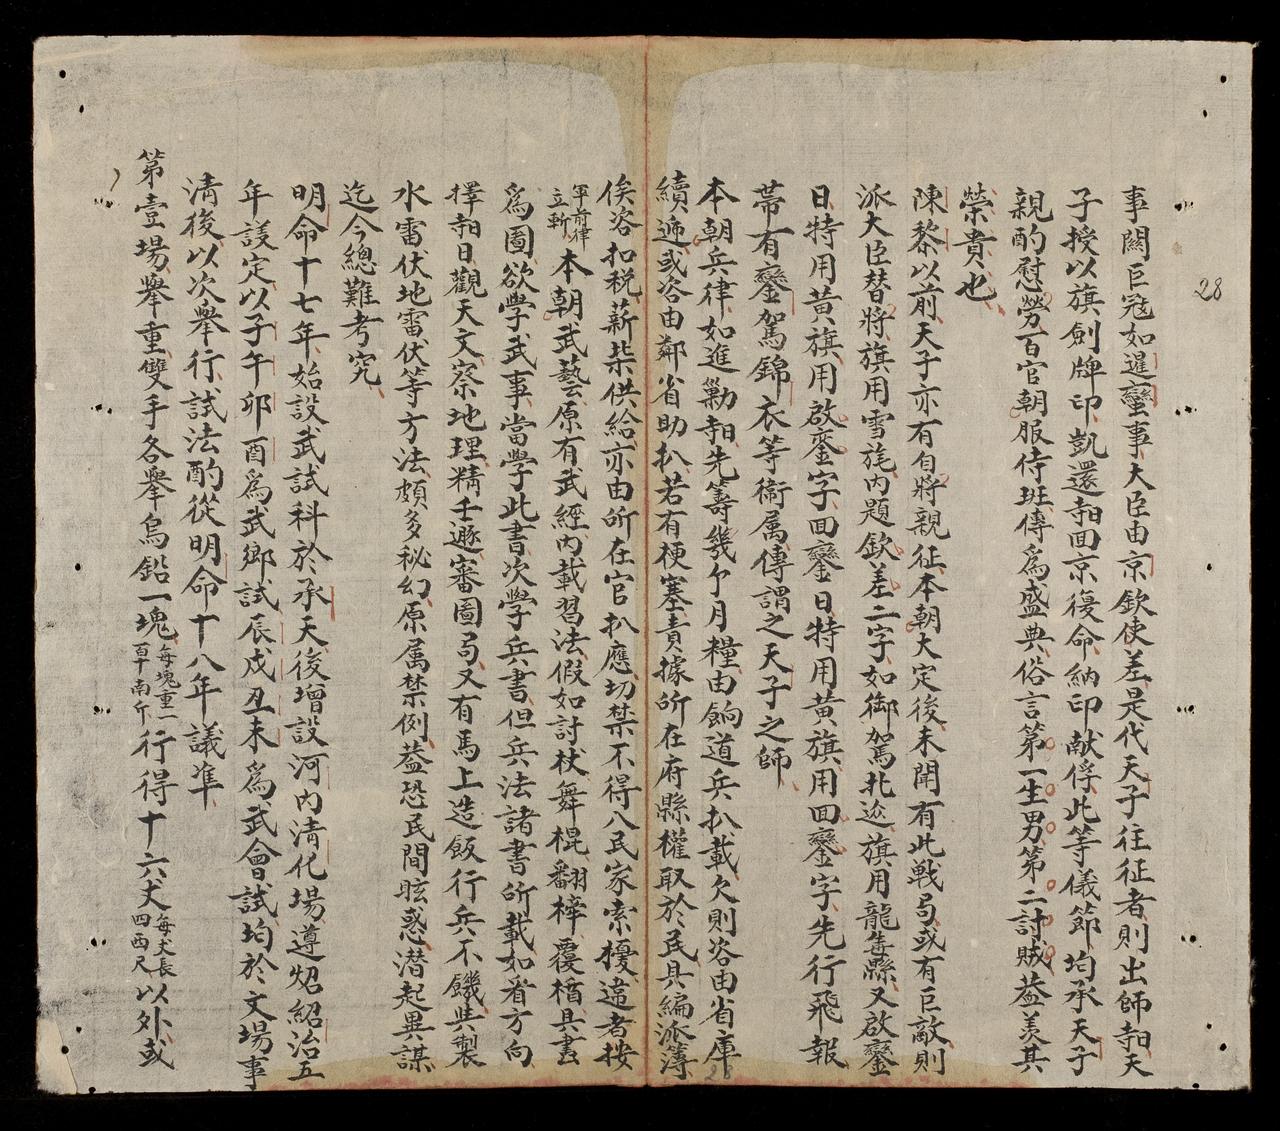 28
事關巨冦如暹蠻事大臣由京欽使差是代天子往征者則出師𣇞天
子授以旗劍牌印凱還𣇞囬京復命納印献俘此等儀節均承天子
親酌慰勞百官朝服侍班傳爲盛典俗言第一生男第二討賊葢羡其
榮貴也
陳黎以前天子亦有自將親征本朝大定後未聞有此戦局或有巨敵則
派大臣替將旗用雪旄内題欽差二字如御駕北廵旗用龍隼縣又啟鑾
日特用黄旗用啟鑾字囬鑾日特用黄旗用囬鑾字先行飛報
帶有鑾駕錦衣等衞属傳謂之天子之師
本朝兵律如進勦𣇞先籌幾个月糧由餉道兵扒載欠則咨由省庫
續逓或咨由鄰省助扒若有梗塞責據所在府縣權取於民具編派簿
俟咨扣税薪柴供給亦由所在官扒應切禁不得入民家索擾違者按
軍前律立斬本朝武藝原有武經内載習法假如討杖舞棍翻梓覆楯具畫
爲圖欲學武事當學此書次學兵書但兵法諸書所載如省方向
擇𣇞日觀天文察地理精壬遯審圖局又有馬上造飯行兵不饑與製
水雷伏地雷伏等方法頗多秘幻原属禁例葢恐民間眩惑潜起異謀
迄今總難考究
明命十七年始設武試科於承天後增設河内清化場遵炤紹治五
年議定以子午卯酉爲武鄉試辰戌丑未爲武會試均於文場事
清後以次舉行試法酌從明命十八年議準
第壹場舉重雙手各舉烏鉛一塊每塊重一百十南斤行得十六丈每丈長四西尺以外或
28